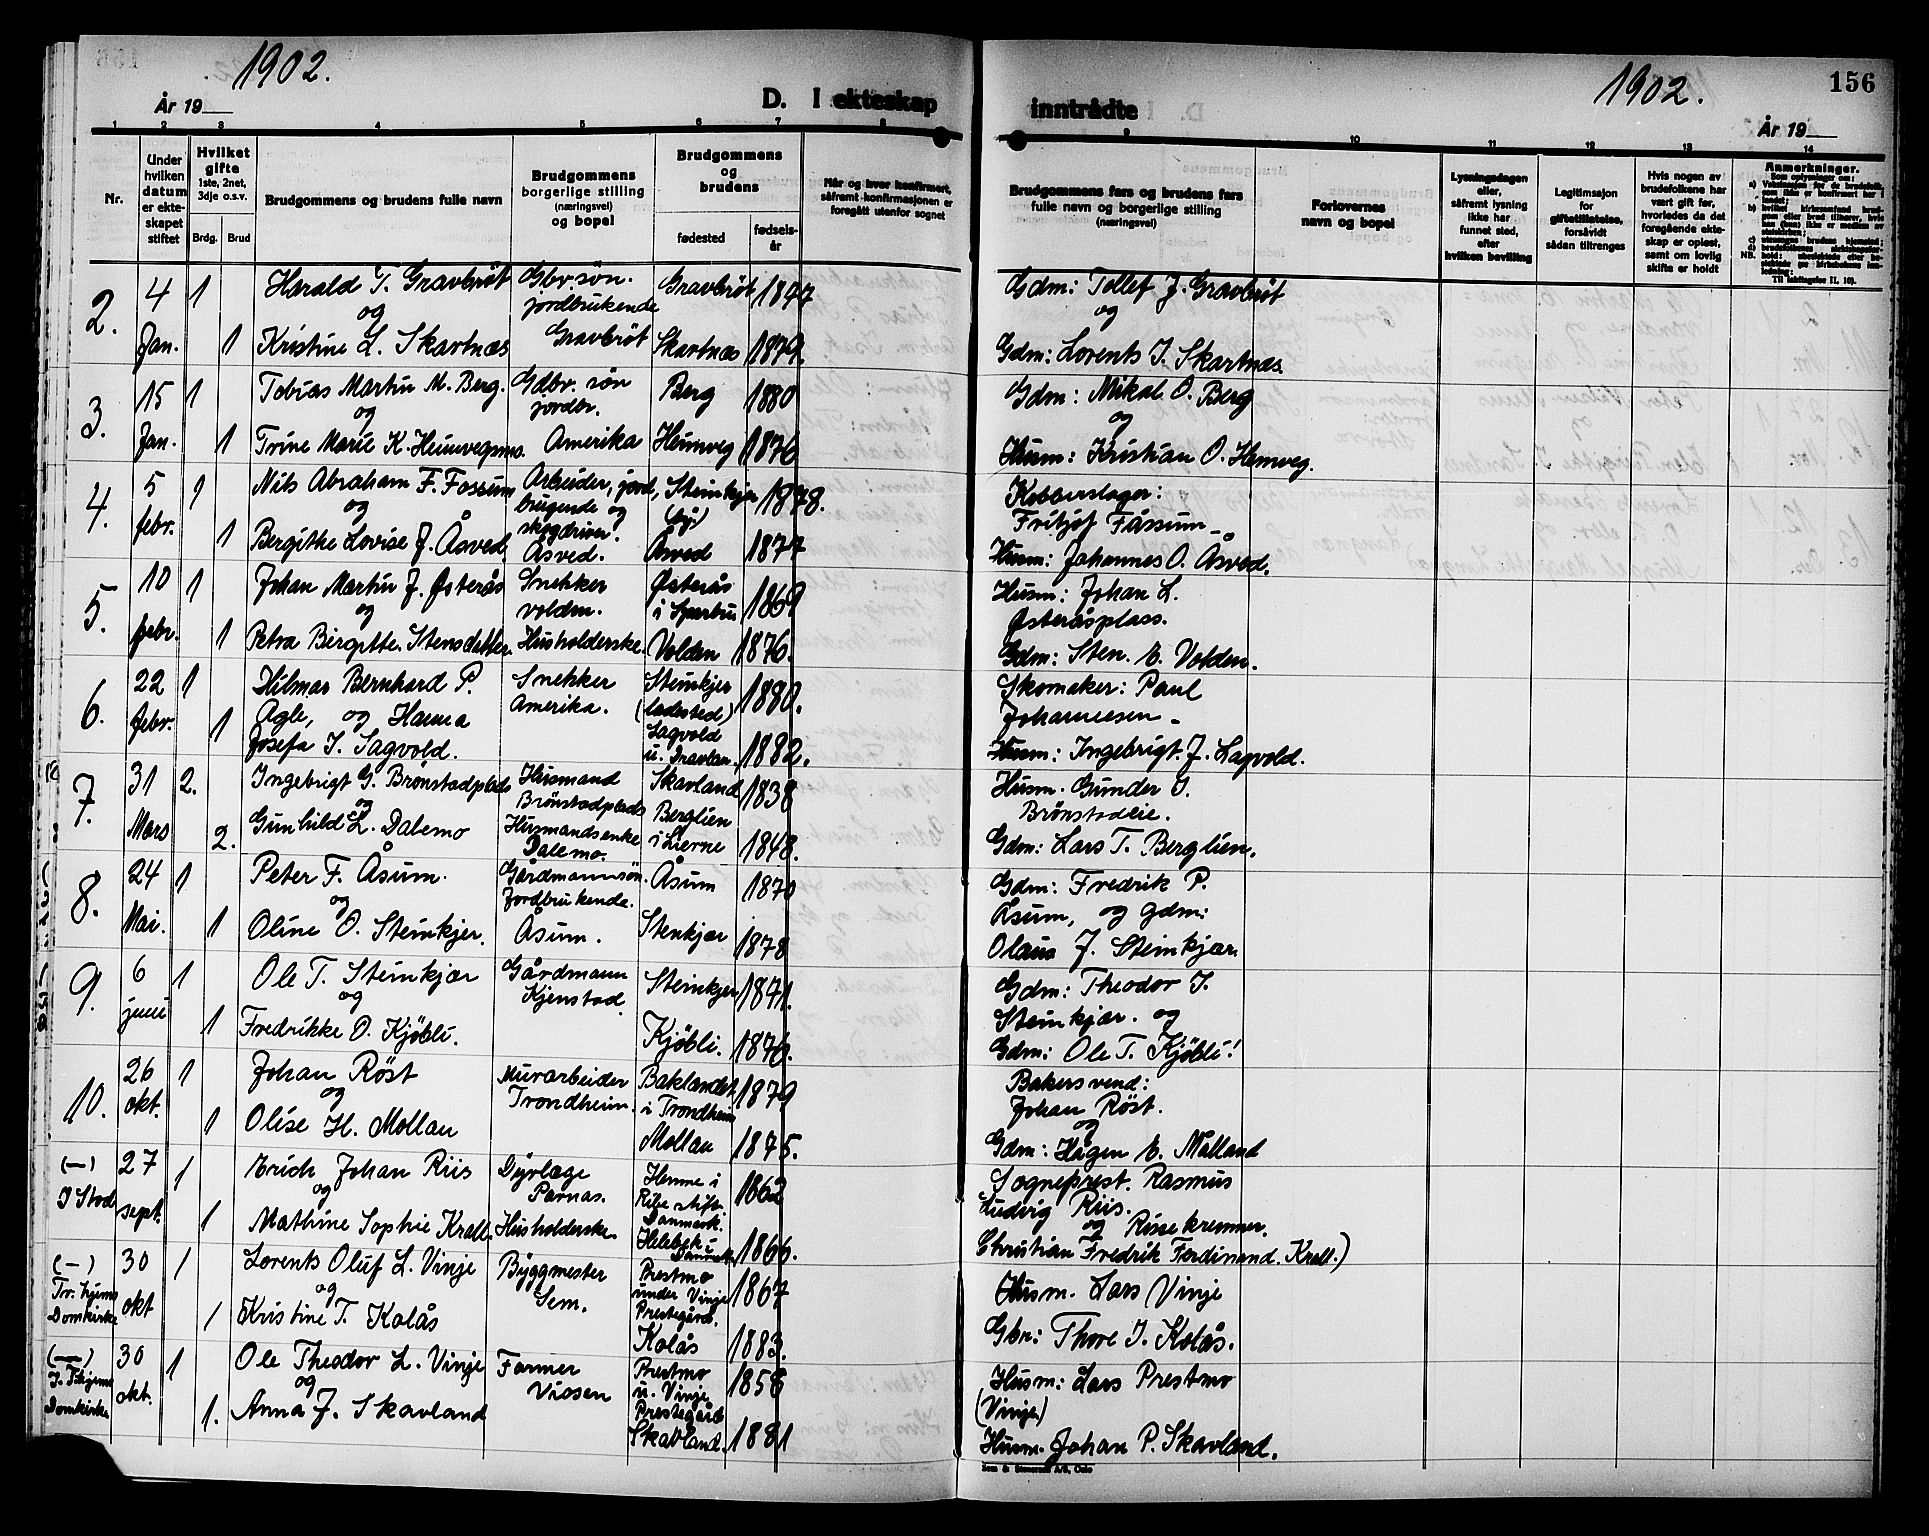 1902.
År 19
D. I ekteskap
1 2 3 4 5 6 7 8
Nr.
Under hvilken datum er ekteskapet stiftet
Hvilket gifte
1ste, 2net, 3dje o.s.v.
Brdg. Brud
Brudgommens og brudens fulle navn
Brudgommens borgerlige stilling (næringsvei) og bopel
Brudgommens og brudens
fødested
fødselsår
Når og hvor konfirmert, såfremt konfirmasjonen er foregått utenfor sognet
2. 4 Jan. 1 Harald T. Gravbröt Gbr. søn. jordbrukende Gravbröt Gravbröt 1847
og
1 Kristine L. Skartnæs Skartnæs 1879.
3. 15 Jan. 1 Tobias Martin M. Berg. Gdbr. søn jordbr. Amerika Berg 1880
og
1 Trine Marie K. Heimvegsms. Heimveg 1876
4. 5 febr. 1 Nils Abraham F. Fossum Arbeider, jordbrugende og skogdriver. Åsved. Steinkjer (by) 1878.
og
1 Bergithe Lovise J. Åsved. Åsved 1877
5. 10 febr. 1 Johan Martin J. Østerås Snekker voldm. Østerås i Sparbu 1869
og
1 Petra Bergitte Stensdatter. Husholderske. Volden 1876.
6. 22 febr. 1 Hilmar Bernhard P. Snekker Amerika. Steinkjer (ladested) 1880.
1 Agle, og Hanna
Josefa I. Sagvold. Sagvold 1882.
7. 31 Mars 2. Ingebrigt G. Brönstadplads Husmand Brönstadplads Skavland 1838
og
2. Gunhild L. Dalemo Husmandsenke Dalemo. Berglien i Lierne 1848.
8. 24 Mai. 1 Peter F. Åsum. Gårdmannsön. Jordbrukende. Åsum. Åsum 1870
og
1 Oline O. Steinkjer. Stenkjær 1878
9. 6 juni 1 Ole T. Steinkjær Gårdmann Kjenstad. Steinkjer 1871.
og
1 Fredrikke O. Kjöbli. Kjöbli. 1876.
10. 26 okt. 1 Johan Röst Murarbeider Trondheim. Baklandet i Trondheim 1879
og
1 Olise H. Mollan Mollan 1875.
(—) I Stod 27 sept. 1 Erich Johan Riis Dyrlæge Parnas. Hemme i Ribe stift. Danmark. 1862
og
1 Mathine Sophie Krall. Husholderske. 1866.
(—) Tr. hjems Domkirke 30 okt 1 Lorents Oluf L. Vinje Byggmester Sem. Prestmo under Vinje Prestegård. 1867
og
1 Kristine T. Kolås Kolås 1883.
(—) I. T.hjems Domkirke 30 okt. 1 Ole Theodor L. Vinje Farmer Viosen Prestmo u. Vinje Prestegård 1858
og
1. Anna J. Skavland Skavland. 1881
1902.
156
inntrådte
År 19
9 10 11 12 13 14
Brudgommens fars og brudens fars fulle navn og borgerlige stilling (næringsvei)
Forlovernes navn og bopel
Lysningsdagen eller, såfremt lysning ikke har funnet sted, efter hvilken bevilling
Legitimasjon for giftetillatelse, forsåvidt sådan tiltrenges
Hvis nogen av brudefolkene har vært gift før, hvorledes da det foregående ekteskap er opløst, samt om lovlig skifte er holdt
Anmerkninger.
Gdm: Tollef J. Gravbröt
og
Gdm: Lorents J. Skartnæs.
Gdm: Mikal O. Berg
og
Husm: Kristian O. Hemveg.
Kobberslager:
Fritjof Fåssum –
Husm: Johannes O. Åsved.
Husm: Johan L.
Østeråsplass.
Gdm: Sten. E. Volden.
Skomaker: Paul
Johannesen –
Husm: Ingebrigt J. Lagvold.
Husm. Gunder I.
Brönstadeie.
Gdm: Lars T. Berglien.
Gdm: Fredrik P.
Åsum, og Gdm:
Olaus J. Steinkjær.
Gdm: Theodor I.
Steinkjær. og
Gdm: Ole T. Kjöbli!
Bakersvend:
Johan Röst.
og
Gdm: Hågen E. Målland
Sogneprest. Rasmus
Ludvig Riis.
og
Christian Fredrik Ferdinand. Krall.)
Husm. Lars Vinje
Gbr: Thore I. Kolås.
Husm: Lars Prestmo
(Vinje)
Husm. Johan P. Skavland.